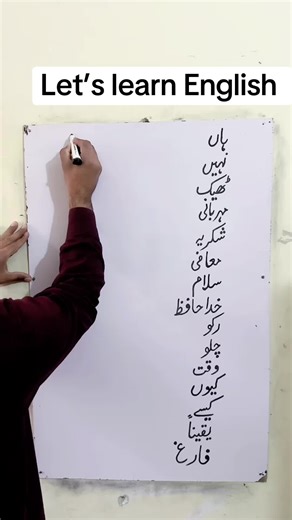 Let’s learn English
ہاں
نہیں
ٹھیک
مہربانی
شکریہ
معافی
سلام
خدا حافظ
رکو
چلو
وقت
کیوں
کیسے
یقیناً
فارغ